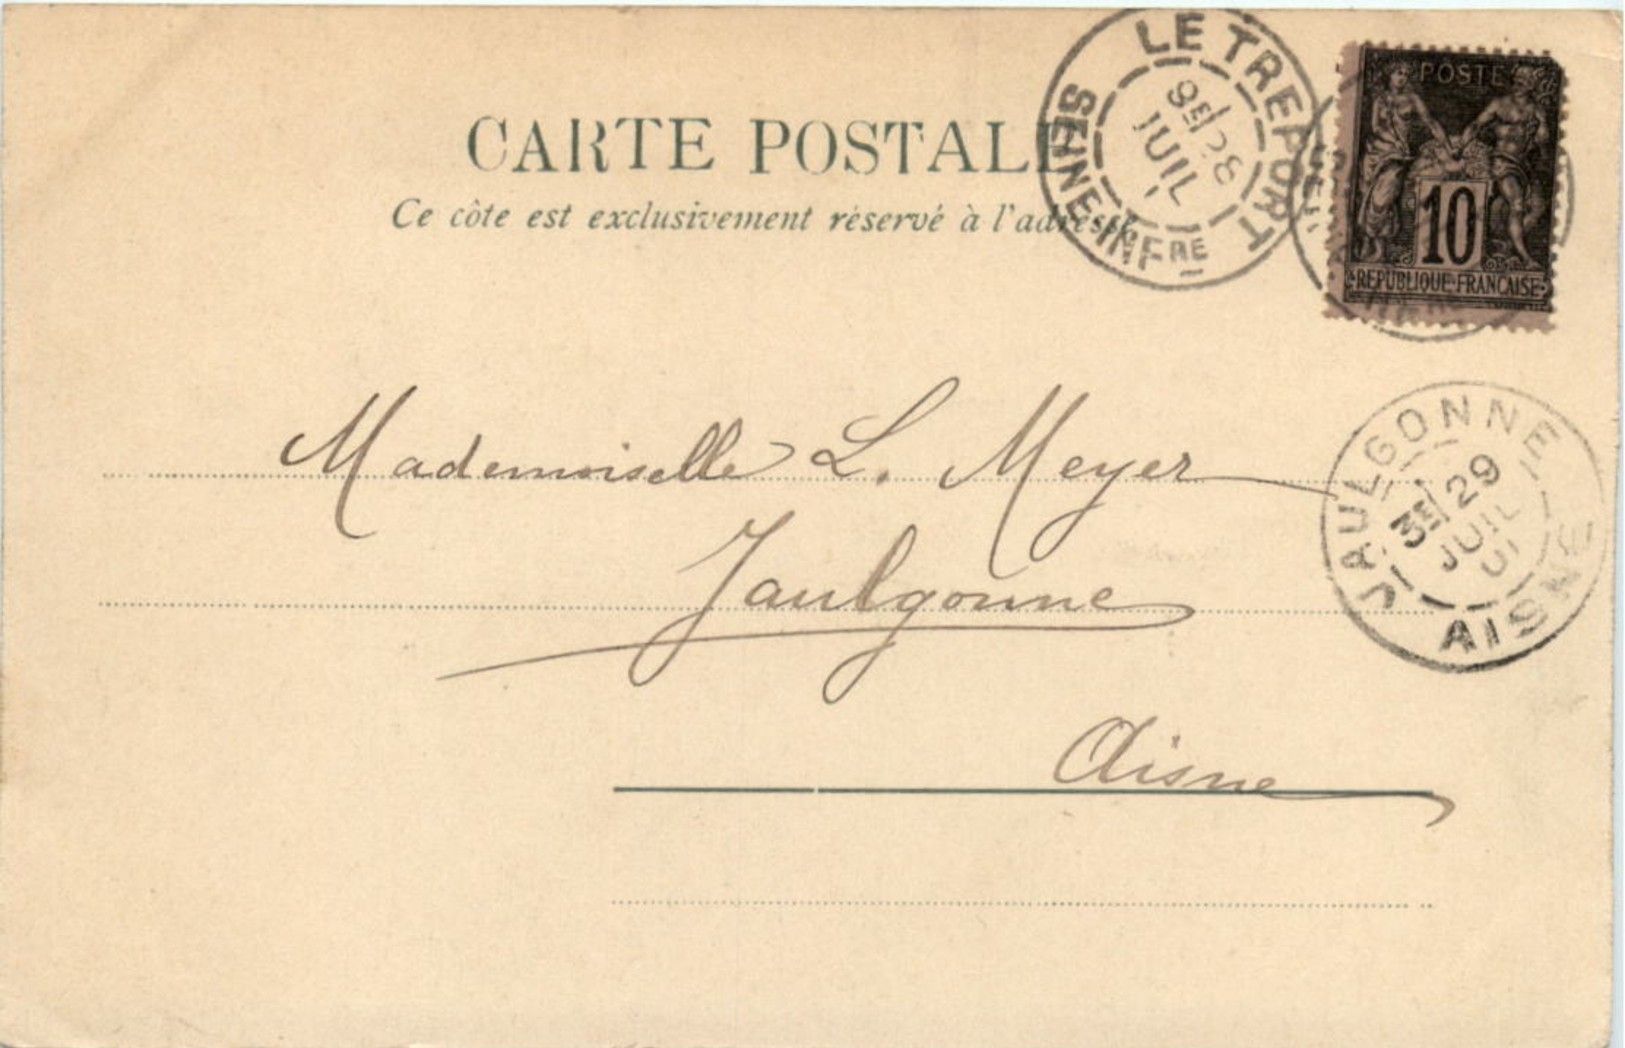 CARTE POSTALE
Ce côte est exclusivement réservé à l'adresse
LE TREPORT
9E 28
JUIL
SEINE-INFRE
POSTE
10
REPUBLIQUE FRANCAISE
Mademoiselle L. Meyer
Jaulgonne
Aisne
JAULGONNE
3E 29
JUIL
01
AISNE